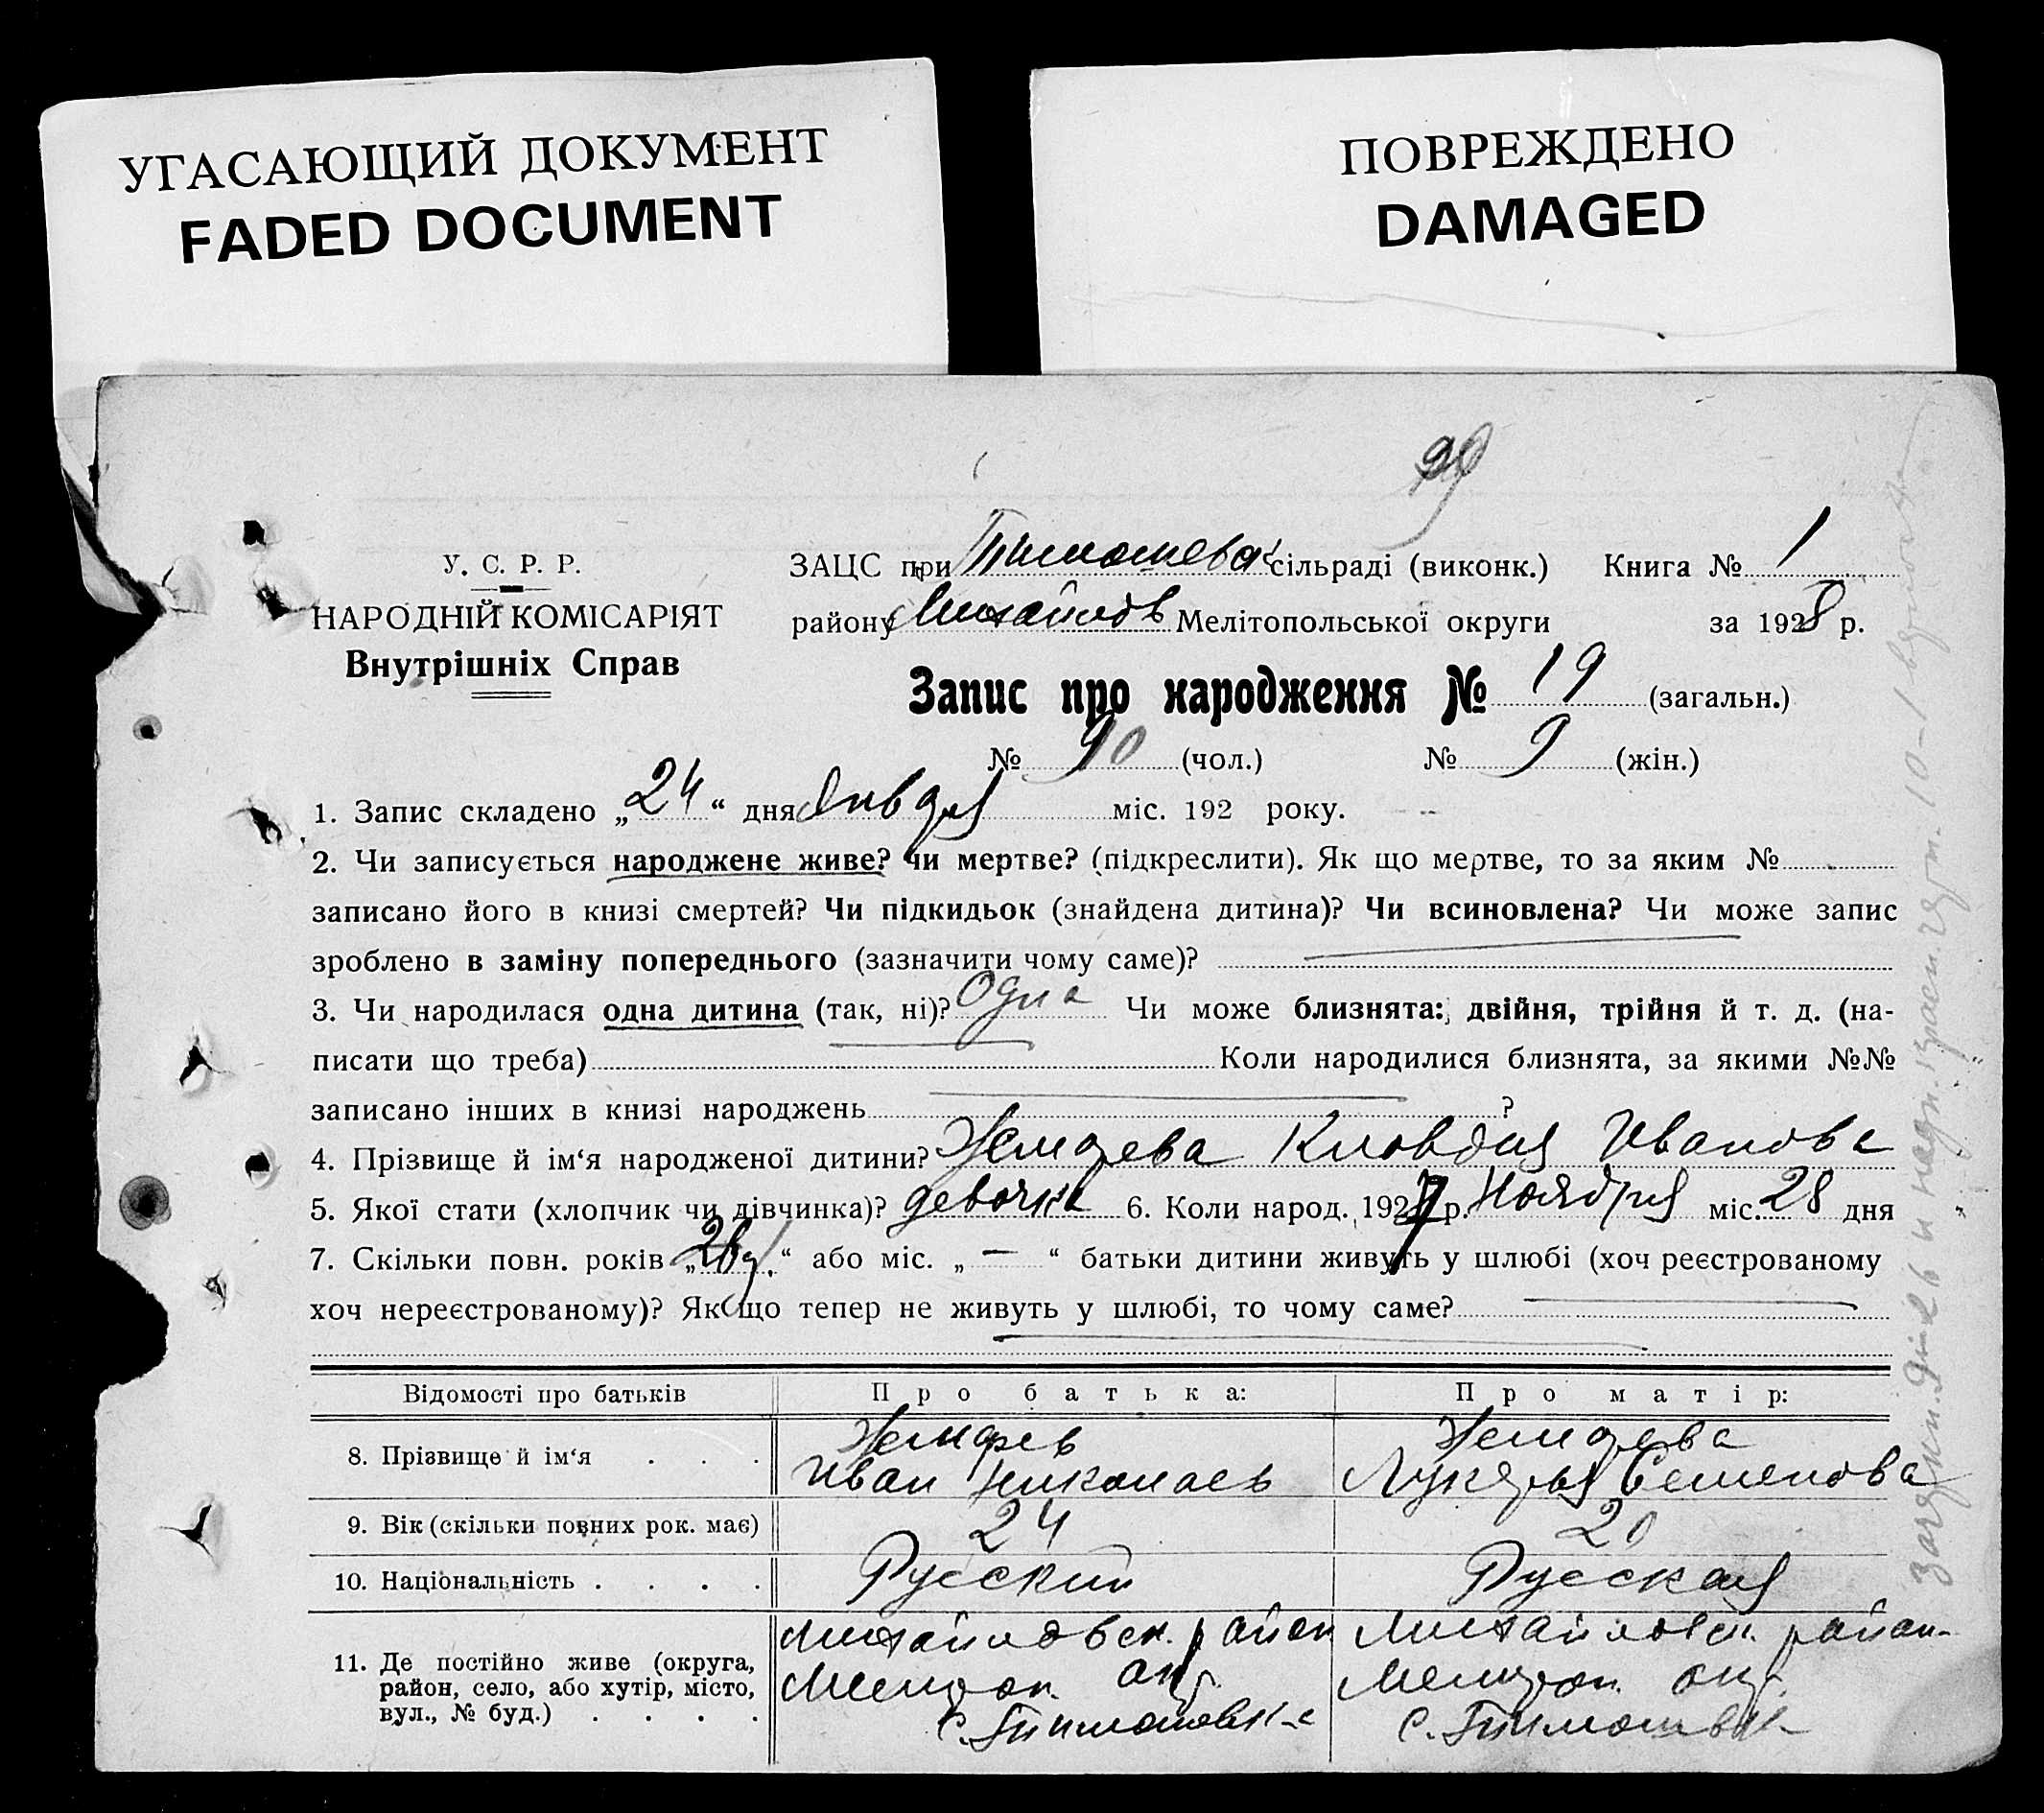 УГАСАЮЩИЙ ДОКУМЕНТ
FADED DOCUMENT
ПОВРЕЖДЕНО
DAMAGED
У. С. Р. Р.
НАРОДНІЙ КОМІСАРІЯТ
Внутрішніх Справ
ЗАЦС при Тимошевск сільраді (виконк.) Книга № 1
району Михайлов Мелітопольської округи за 1928 р.
Запис про народження № 19 (загальн.)
№ (чол.) № 9 (жін.)
1. Запис складено „24“ дня Января міс. 192 року.
2. Чи записується народжене живе? чи мертве? (підкреслити). Як що мертве, то за яким №
записано його в книзі смертей? Чи підкидьок (знайдена дитина)? Чи всиновлена? Чи може запис
зроблено в заміну попереднього (зазначити чому саме)?
3. Чи народилася одна дитина (так, ні)? Одна Чи може близнята: двійня, трійня й т. д. (на-
писати що треба) Коли народилися близнята, за якими №№
записано інших в книзі народжень ?
4. Прізвище й ім‘я народженої дитини? Клавдия Иванова
5. Якої стати (хлопчик чи дівчинка)? девочка 6. Коли народ. 1927 р. Ноября міс. 28 дня
7. Скільки повн. років „2 “ або міс. „ — “ батьки дитини живуть у шлюбі (хоч реєстрованому
хоч нереєстрованому)? Як що тепер не живуть у шлюбі, то чому саме?
Відомості про батьків
Про батька:
Про матір:
8. Прізвище й ім‘я . . .
Иван Николаев
Лукерья Семенова
9. Вік (скільки повних рок. має)
24
20
10. Національність . . . .
Русский
Русская
11. Де постійно живе (округа,
район, село, або хутір, місто,
вул., № буд.) . . . .
Михайловск. район
Мелитоп. окр.
с. Тимошовка
Михайловск. район
Мелитоп. окр.
с. Тимошовка